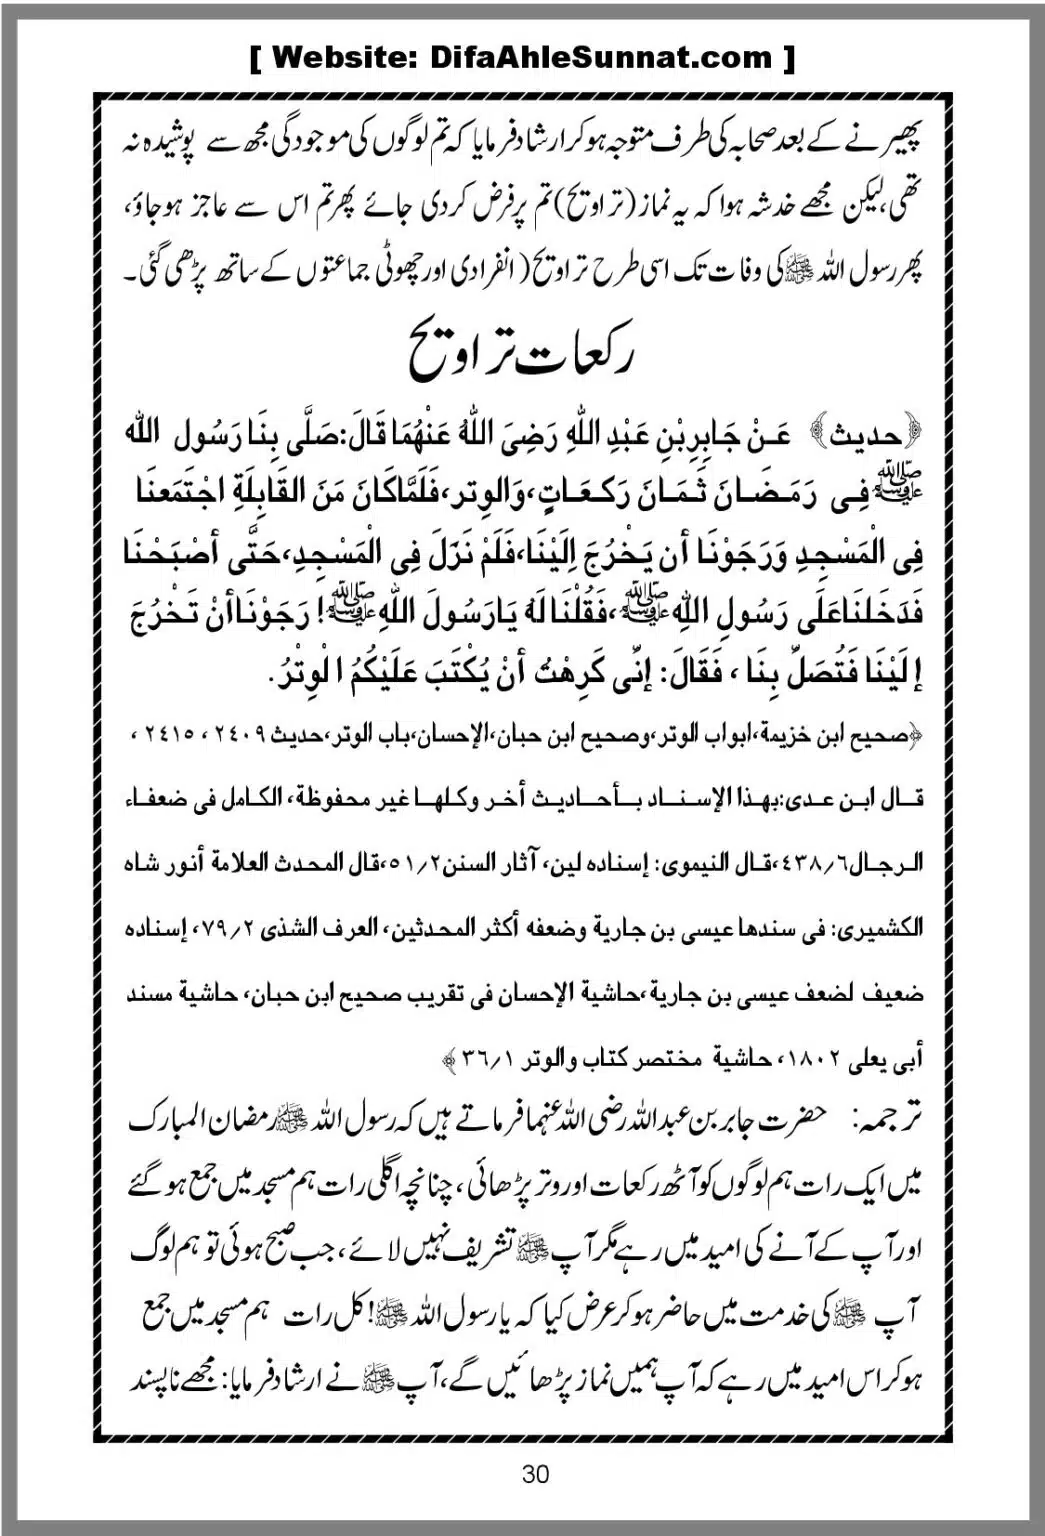 [ Website: DifaAhleSunnat.com ]
پھیرنے کے بعد صحابہ کی طرف متوجہ ہوکر ارشاد فرمایا کہ تم لوگوں کی موجودگی مجھ سے پوشیدہ نہ
تھی،لیکن مجھے خدشہ ہوا کہ یہ نماز(تراویح)تم پر فرض کردی جائے پھر تم اس سے عاجز ہوجاؤ،
پھر رسول اللہ ﷺ کی وفات تک اسی طرح تراویح( انفرادی اور چھوٹی جماعتوں کے ساتھ پڑھی گئی۔
رکعات تراویح
﴿حدیث﴾ عَنْ جَابِرِبْنِ عَبْدِ اللّٰهِ رَضِیَ اللّٰهُ عَنْهُمَا قَالَ:صَلَّی بِنَا رَسُول الله
ﷺ فِی رَمَضَانَ ثَمَانَ رَكعَاتٍ،وَالوِتر،فَلَمَّاكَانَ مَنَ القَابِلَةِ اجْتَمَعنَا
فِی الْمَسْجِدِ وَرَجَوْنَا أن یَخْرُجَ اِلَیْنَا،فَلَمْ نَزَلَ فِی الْمَسْجِدِ،حَتَّی أصْبَحْنَا
فَدَخَلنَاعَلَی رَسُولِ اللّٰهِ ﷺ،فَقُلْنَا لَهُ یَارَسُولَ اللّٰهِ ﷺ! رَجَوْنَاأنْ تَخْرُجَ
إلَیْنَا فَتُصَلِّ بِنَا ، فَقَالَ: إنّی كَرِهْتُ أنْ یُكْتَبَ عَلَیْكُمُ الْوِتْرُ.
﴿صحیح ابن خزیمة،ابواب الوتر،وصحیح ابن حبان،الإحسان،باب الوتر،حدیث ٢٤٠٩، ٢٤١٥ ،
قال ابن عدی:بهذا الإسناد بأحادیث أخر وكلها غیر محفوظة، الكامل فی ضعفاء
الرجال٤٣٨/٦،قال النیموی: إسناده لین، آثار السنن٥١/٢،قال المحدث العلامة أنور شاه
الكشمیری: فی سندها عیسی بن جاریة وضعفه أكثر المحدثین، العرف الشذی ٧٩/٢، إسناده
ضعیف لضعف عیسی بن جاریة،حاشیة الإحسان فی تقریب صحیح ابن حبان، حاشیة مسند
أبی یعلی ١٨٠٢، حاشیة مختصر كتاب والوتر ٣٦/١﴾
ترجمہ: حضرت جابر بن عبداللہ رضی اللہ عنہما فرماتے ہیں کہ رسول اللہ ﷺ رمضان المبارک
میں ایک رات ہم لوگوں کو آٹھ رکعات اور وتر پڑھائی، چنانچہ اگلی رات ہم مسجد میں جمع ہوگئے
اور آپ کے آنے کی امید میں رہے مگر آپ ﷺ تشریف نہیں لائے، جب صبح ہوئی تو ہم لوگ
آپ ﷺ کی خدمت میں حاضر ہوکر عرض کیا کہ یا رسول اللہ ﷺ! کل رات ہم مسجد میں جمع
ہوکر اس امید میں رہے کہ آپ ہمیں نماز پڑھائیں گے،آپ ﷺ نے ارشاد فرمایا: مجھے ناپسند
30